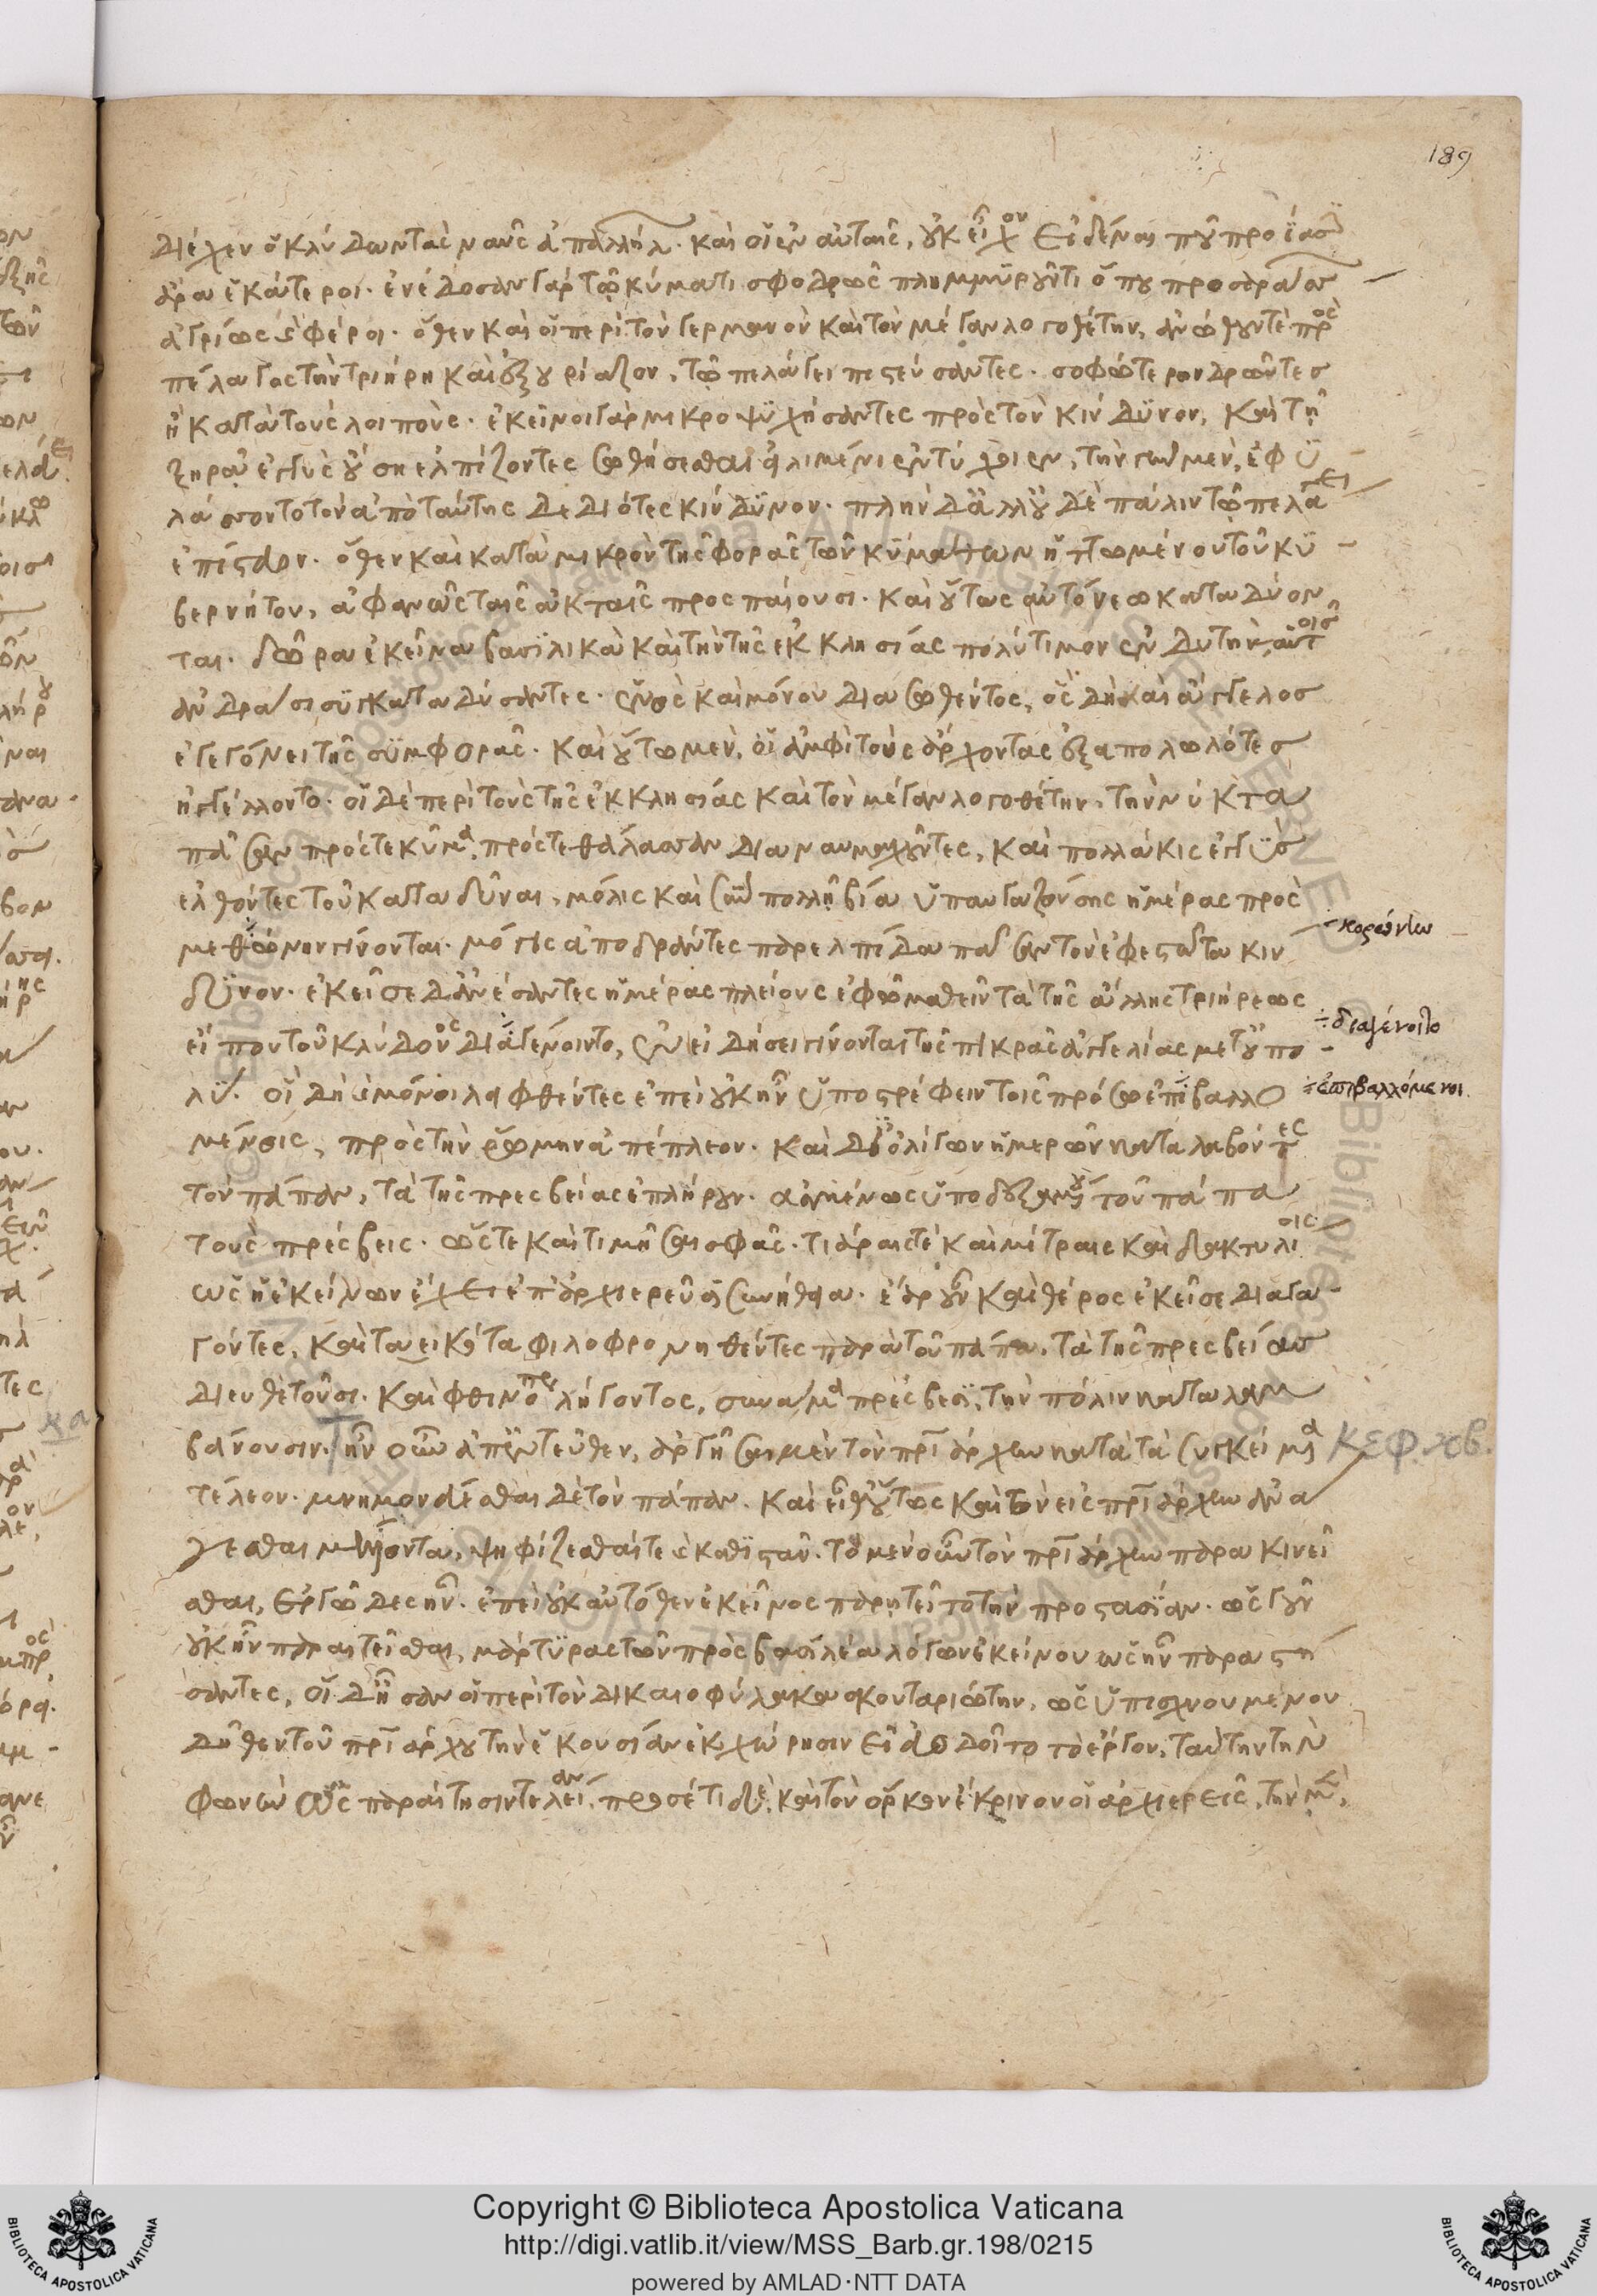 189
διέχεν ὁ κλύδων τὰς ναῦς ἀπαλλήλ. καὶ οἱ ἐν αὐταῖς, οὐκ εἶχον εἰδέναι ποῦ προΐασι
ἄρα ἑκάτεροι. ἐνέδοσαν γὰρ τῷ κύματι σφοδρῶς πλημμυροῦντι ὅπου προσαράσσον
ἀγρίως καὶ φέροι. ὅθεν καὶ οἱ περὶ τὸν γερμανὸν καὶ τὸν μέγαν λογοθέτην, ἀνωθοῦντες πρὸς
πέλαγος τὴν τριήρη καὶ ἐξουρίαζον, τῷ πελάγει πιστεύσαντες. σοφώτερον δρῶντες
ἢ κατὰ τοὺς λοιπούς. ἐκεῖνοι γὰρ μικροψυχήσαντες πρὸς τὸν κίνδυνον, καὶ τῇ
ξηρᾷ ἐγγὺς οὔσῃ ἐλπίζοντες σωθήσεσθαι εἰ λιμένι ἐντύχοιεν, τὴν γῆν μὲν, ἐφυ
λάσσοντο τὸν ἀπὸ ταύτης δεδιότες κίνδυνον. πλὴν δ' ἀλλ' οὐδὲ πάλιν τῷ πελάγει
ἐπίστευον. ὅθεν καὶ κατὰ μικρὸν τῆς φορᾶς τῶν κυμάτων ἡττωμένου τοῦ κυ
βερνήτου, ἀφανῶς ταῖς ἀκταῖς προσπαίουσι. καὶ οὕτως αὐτόνεω καταδύον
ται. δῶρα ἐκεῖνα βασιλικὰ καὶ τὴν τῆς ἐκκλησίας πολύτιμον ἐνδυτὴν, αὐτοῖς
ἀνδράσι συγκαταδύσαντες. ἑνὸς καὶ μόνου διασωθέντος, ὃς δὴ καὶ ἄγγελος
ἐγεγόνει τῆς συμφορᾶς. καὶ οὕτω μὲν, οἱ ἀμφὶ τοὺς ἄρχοντας ἐξαπολωλότες
ἠγγέλλοντο. οἱ δὲ περὶ τοὺς τῆς ἐκκλησίας καὶ τὸν μέγαν λογοθέτην, τὴν νύκτα
πᾶσαν πρός τε κῦμα, πρός τε θάλασσαν διαναυμαχοῦντες, καὶ πολλάκις ἐγγὺς
ἐλθόντες τοῦ καταδῦναι, μόλις καὶ σὺν πολλῇ βίᾳ ὑπαυγαζούσης ἡμέρας πρὸς
μεθώνην γίνονται. μόγις ἀποδράντες παρ' ἐλπίδα πᾶσαν τὸν ἐφεστῶτα κίν
δυνον. ἐκεῖσε δ' ἀνέσαντες ἡμέρας πλείους ἐφ' ᾧ μαθεῖν τὰ τῆς ἄλλης τριήρεως
εἴ που τοῦ κλύδονος διαγένοιντο, ἐν εἰδήσει γίνονται τῆς πικρᾶς ἀγγελίας μετ' οὐ πο
λύ. οἳ δὴ καὶ μόνοι λειφθέντες ἐπεὶ οὐκ ἦν ὑποστρέφειν τοῖς πρόσω ἐπιβαλλο
μένοις, πρὸς τὴν ῥώμην ἀπέπλεον. καὶ δι' ὀλίγων ἡμερῶν καταλαβόντες
τὸν πάπαν, τὰ τῆς πρεσβείας ἐπλήρουν. ἀσμένως ὑποδεξαμένου τοῦ πάπα
τοὺς πρέσβεις. ὥστε καὶ τιμῆσαι σφᾶς. τιάραις τὲ καὶ μίτραις καὶ δακτυλίοις
ὡς ἡ ἐκείνων ἔχει ἐπ' ἀρχιερεῦσι συνήθεια. ἔαρ οὖν καὶ θέρος ἐκεῖσε διαγα
γόντες, καὶ τὰ εἰκότα φιλοφρονηθέντες παρὰ τοῦ πάπα. τὰ τῆς πρεσβείας
διευθετοῦσι. καὶ φθινοπώρου λήγοντος, συνάμα πρέσβεσι, τὴν πόλιν καταλαμ
βάνουσιν. ἦν οὖν ἀπεντεῦθεν, ἀργῆσαι μὲν τὸν πατριάρχην κατὰ τὰ συγκείμενα
τέλεον. μνημονεύεσθαι δὲ τὸν πάπαν. καὶ εἶθ' οὕτως καὶ τὸν εἰς πατριάρχην ἀνα
γεσθαι μέλλοντα, ψηφίζεσθαί τε καὶ καθιστᾶν. τὸ μὲν οὖν τὸν πατριάρχην παρακινεῖ
σθαι, ἐργῶδες ἦν. ἐπεὶ οὐκ αὐτόθεν ἐκεῖνος παρῃτεῖτο τὴν προστασίαν. ὡς γοῦν
οὐκ ἦν παραιτεῖσθαι, μάρτυρας τῶν πρὸς βασιλέα λόγων ἐκείνου ὡς ἦν παραστή
σαντες, οἳ δὴ ἦσαν οἱ περὶ τὸν δικαιοφύλακα σκουταριώτην, ὡς ὑπισχνουμένου
δῆθεν τοῦ πατριάρχου τὴν ἑκουσίαν ἐκχώρησιν εἰ ἀνδοῖτο τὸ ἔργον, ταύτην τὴν
φωνὴν ὡς παραίτησιν τελείαν, προσέτι δὲ καὶ τὸν ὅρκον ἔκρινον οἱ ἀρχιερεῖς, τὴν μὲν,
κορώνην
διαγένοιτο
ἐπιβαλλόμενοι.
κεφ. κβ.
κα
Copyright © Biblioteca Apostolica Vaticana
http://digi.vatlib.it/view/MSS_Barb.gr.198/0215
powered by AMLAD·NTT DATA
BIBLIOTECA APOSTOLICA VATICANA
BIBLIOTECA APOSTOLICA VATICANA